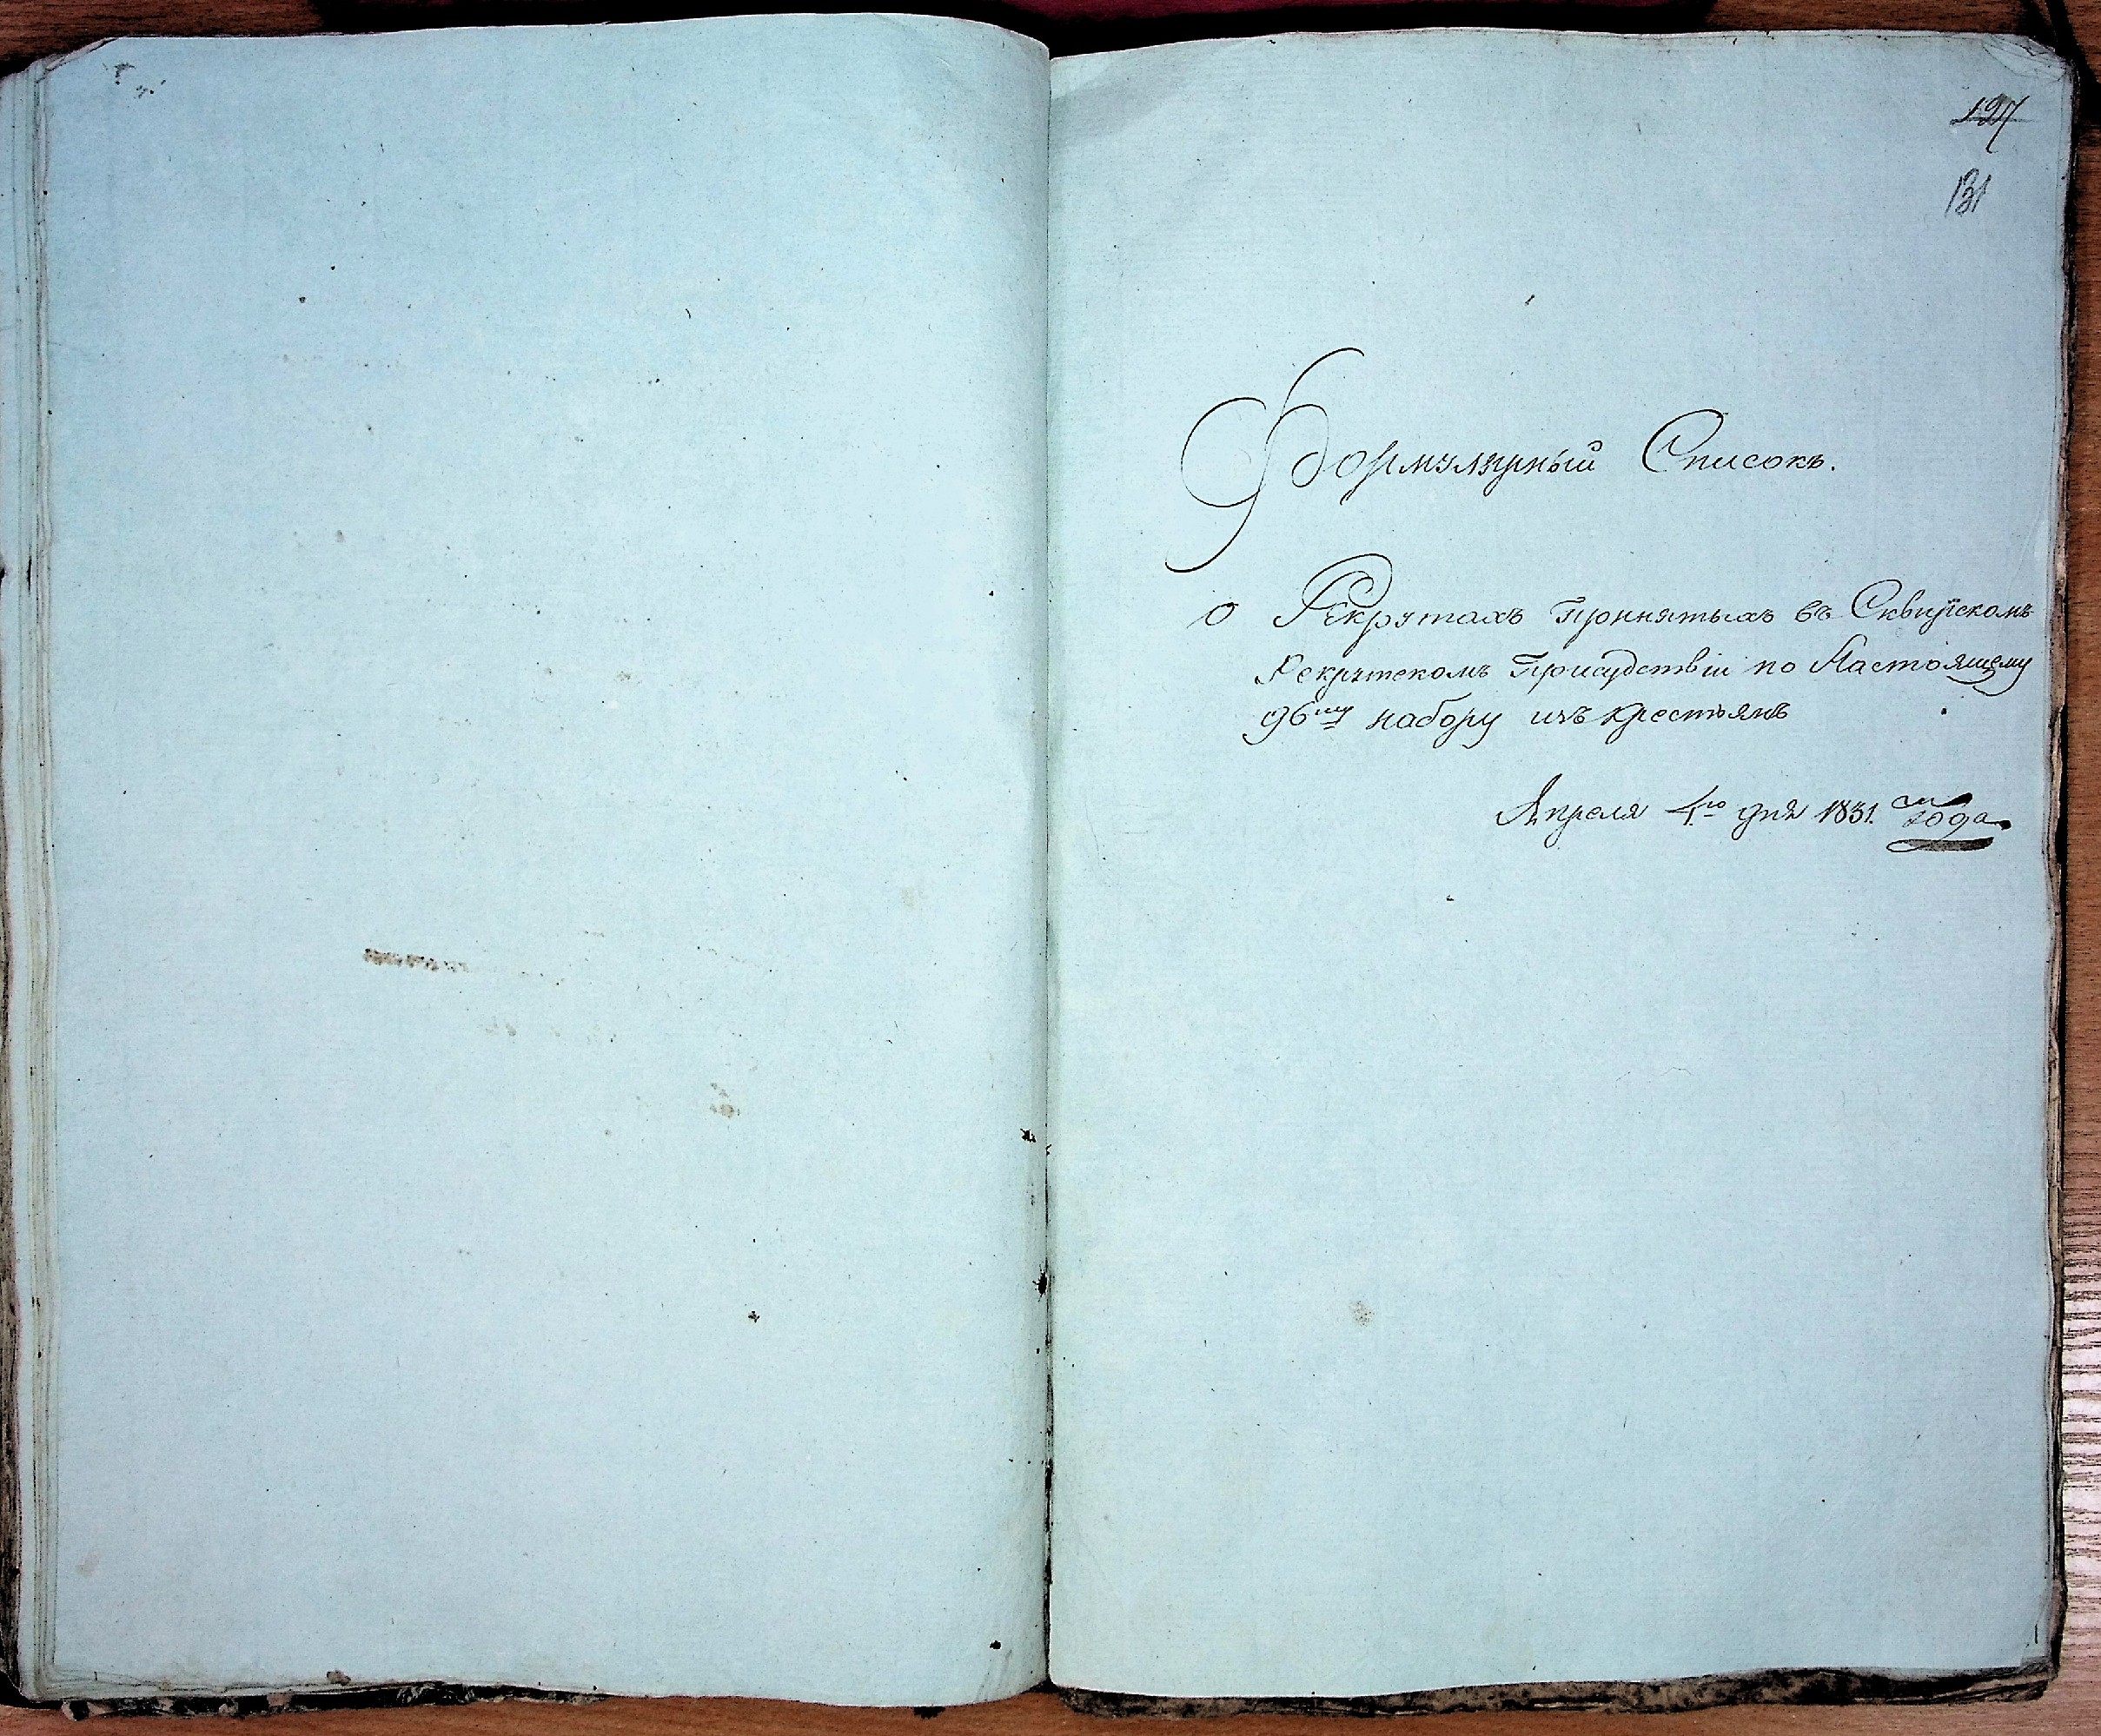 127
131
Формулярный Списокъ.
о Рекрутахъ принятыхъ въ Сквирскомъ
Рекрутскомъ Присудствіи по Настоящему
96му набору изъ крестьянъ
Апреля 4го дня 1831. года